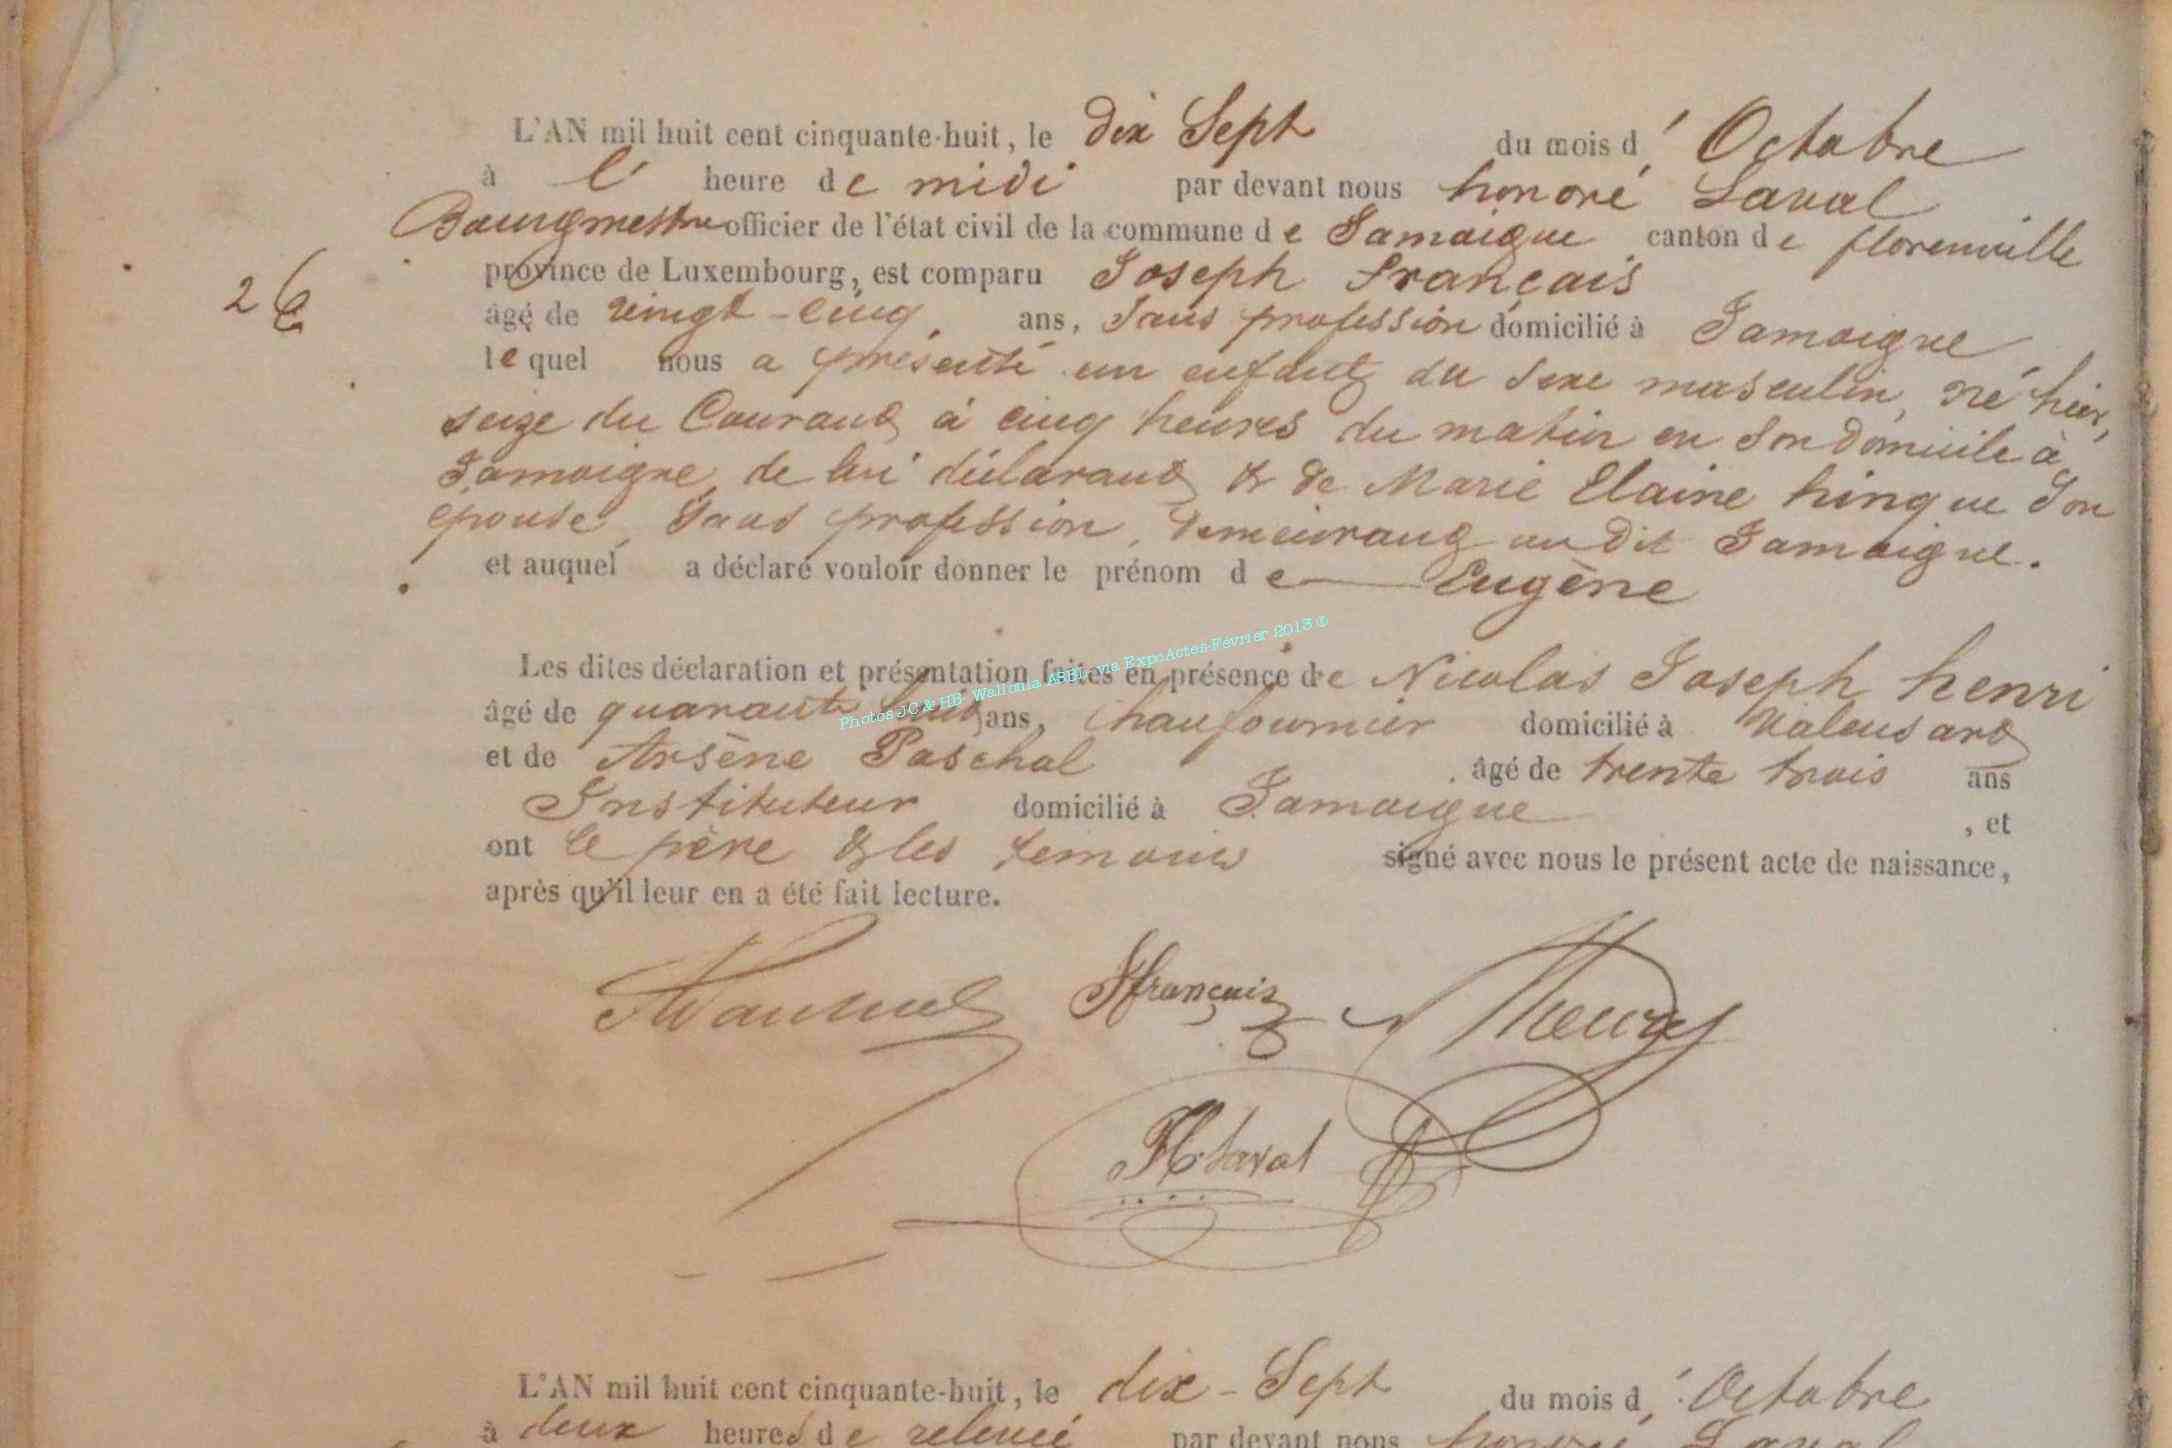 L'AN mil huit cent cinquante-huit, le dix Sept du mois d' Octobre
à l' heure de midi par devant nous honoré Laval
Bourgmestre officier de l'état civil de la commune de Jamoigne canton de florenville
26
province de Luxembourg, est comparu Joseph français
âgé de vingt-cinq ans, Sans profession domicilié à Jamoigne
lequel nous a présenté un enfant du Sexe masculin, né hier,
seize du Courant à cinq heures du matin en Son domicile à
Jamoigne, de lui déclarant & de Marie Elaine hinque Son
épouse, Sans profession, demeurant au dit Jamoigne.
et auquel a déclaré vouloir donner le prénom de Eugène
Photos JC & HB Wallonia ASBL via ExpoActes-Février 2013 ©
Les dites déclaration et présentation faites en présence de Nicolas Joseph henri
âgé de quarante huit ans, Chaufournier domicilié à Valansart
et de Arsène Paschal âgé de trente trois ans
Instituteur domicilié à Jamoigne , et
ont le père & les temoins signé avec nous le présent acte de naissance,
après qu'il leur en a été fait lecture.
Jfrançais
H Laval
L'AN mil huit cent cinquante-huit, le dix-Sept du mois d' Octobre
à deux heures de relevée par devant nous honoré Laval